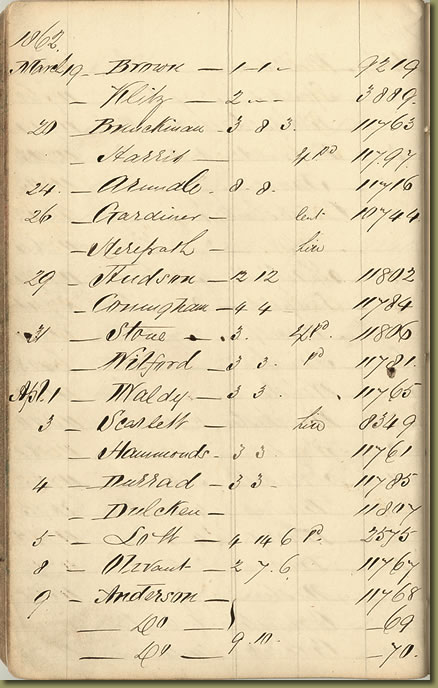 1862.
March 19 – Brown – 1 – 1 – 9219
– Klitz – 2 – – 3889.
20 Bruckman – 3 8 3. 11763
– Harris – Pd 11797
24. – Arundle – 8. 8. 11716
26 – Gardiner – lent 10744
– Herefrath hire
29 – Hudson – 12 12 11802
– Coningham – 4 4 11784
31 – Stone – 3. Pd 11806
– Wilford – 3 3 Pd 11781
Apl. 1 – Waldy – 3 3. 11765
3 – Scarlett – hire 8349
– Hammonds – 3 3 11761
4 – Durrad – 3 3 – 11785
– Dulcken – 11807
5 – Lott – 4 14 6 Pd. 2575
8 – Olivant – 2 7. 6. 11767
9 – Anderson – 11768
– Do – – 69
– Do – 9. 10. – 70.